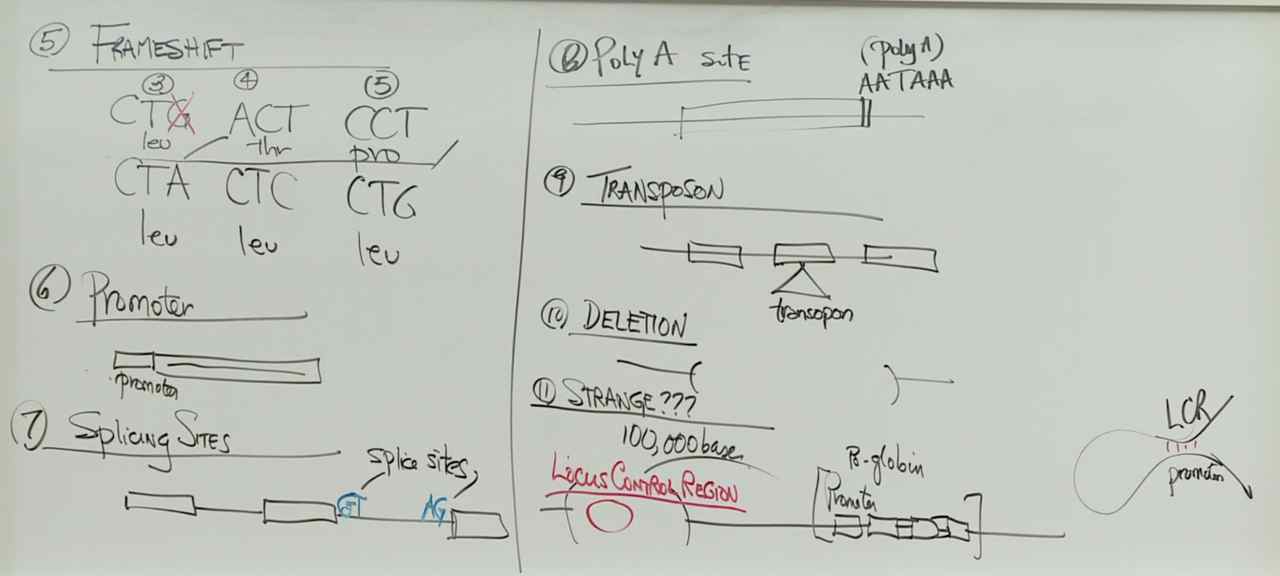 ⑤ FRAMESHIFT
③ ④ ⑤
CTG ACT CCT
leu thr pro
CTA CTC CTG
leu leu leu
⑥ Promoter
promoter
⑦ Splicing Sites
splice sites
GT AG
⑧ Poly A site
(poly A)
AATAAA
⑨ TRANSPOSON
transopon
⑩ DELETION
⑪ STRANGE???
100,000 bases
LOCUS CONTROL REGION
B-globin
Promoter
LCR
promoter